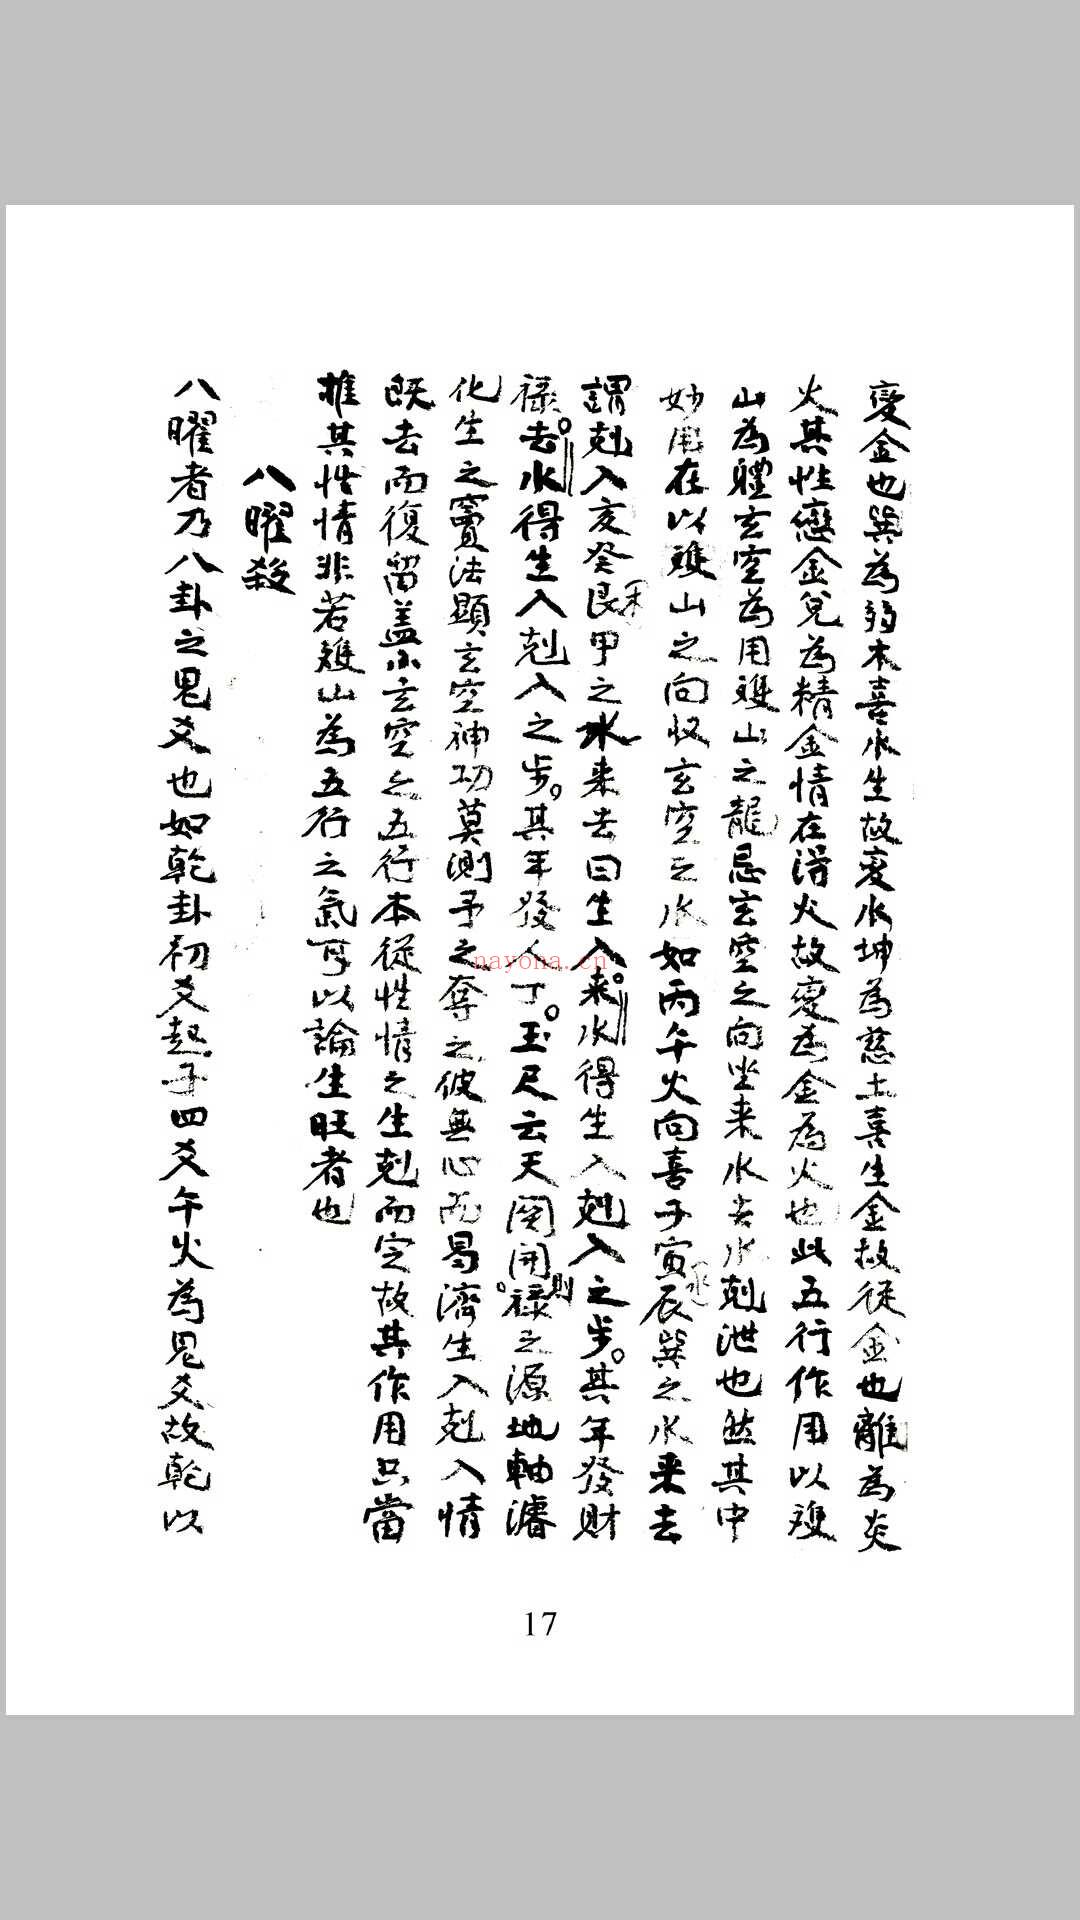 變金也巽為弱木喜水生故変水坤為慈土喜生金故従金也離為炎
火其性戀金兌為精金情在得火故変為金為火也此五行作用以雙
山為體玄空為用雙山之龍忌玄空之向坐来水去水剋泄也然其中
妙用在以雙山之向收玄空之水如丙午火向喜子寅辰巽之水来去
水
謂剋入亥癸艮甲之水来去曰生入来水得生入剋入之步其年發財
木
禄去水得生入剋入之步其年發人丁玉尺云天関開禄之源地軸濬
則
化生之竇法顯玄空神功莫測予之奪之彼無心而曷濟生入剋入情
既去而復留盖小玄空之五行本従性情之生剋而定故其作用只當
推其性情非若雙山為五行之氣可以論生旺者也
八曜殺
八曜者乃八卦之鬼爻也如乾卦初爻起子四爻午火為鬼爻故乾以
nayona.cn
17